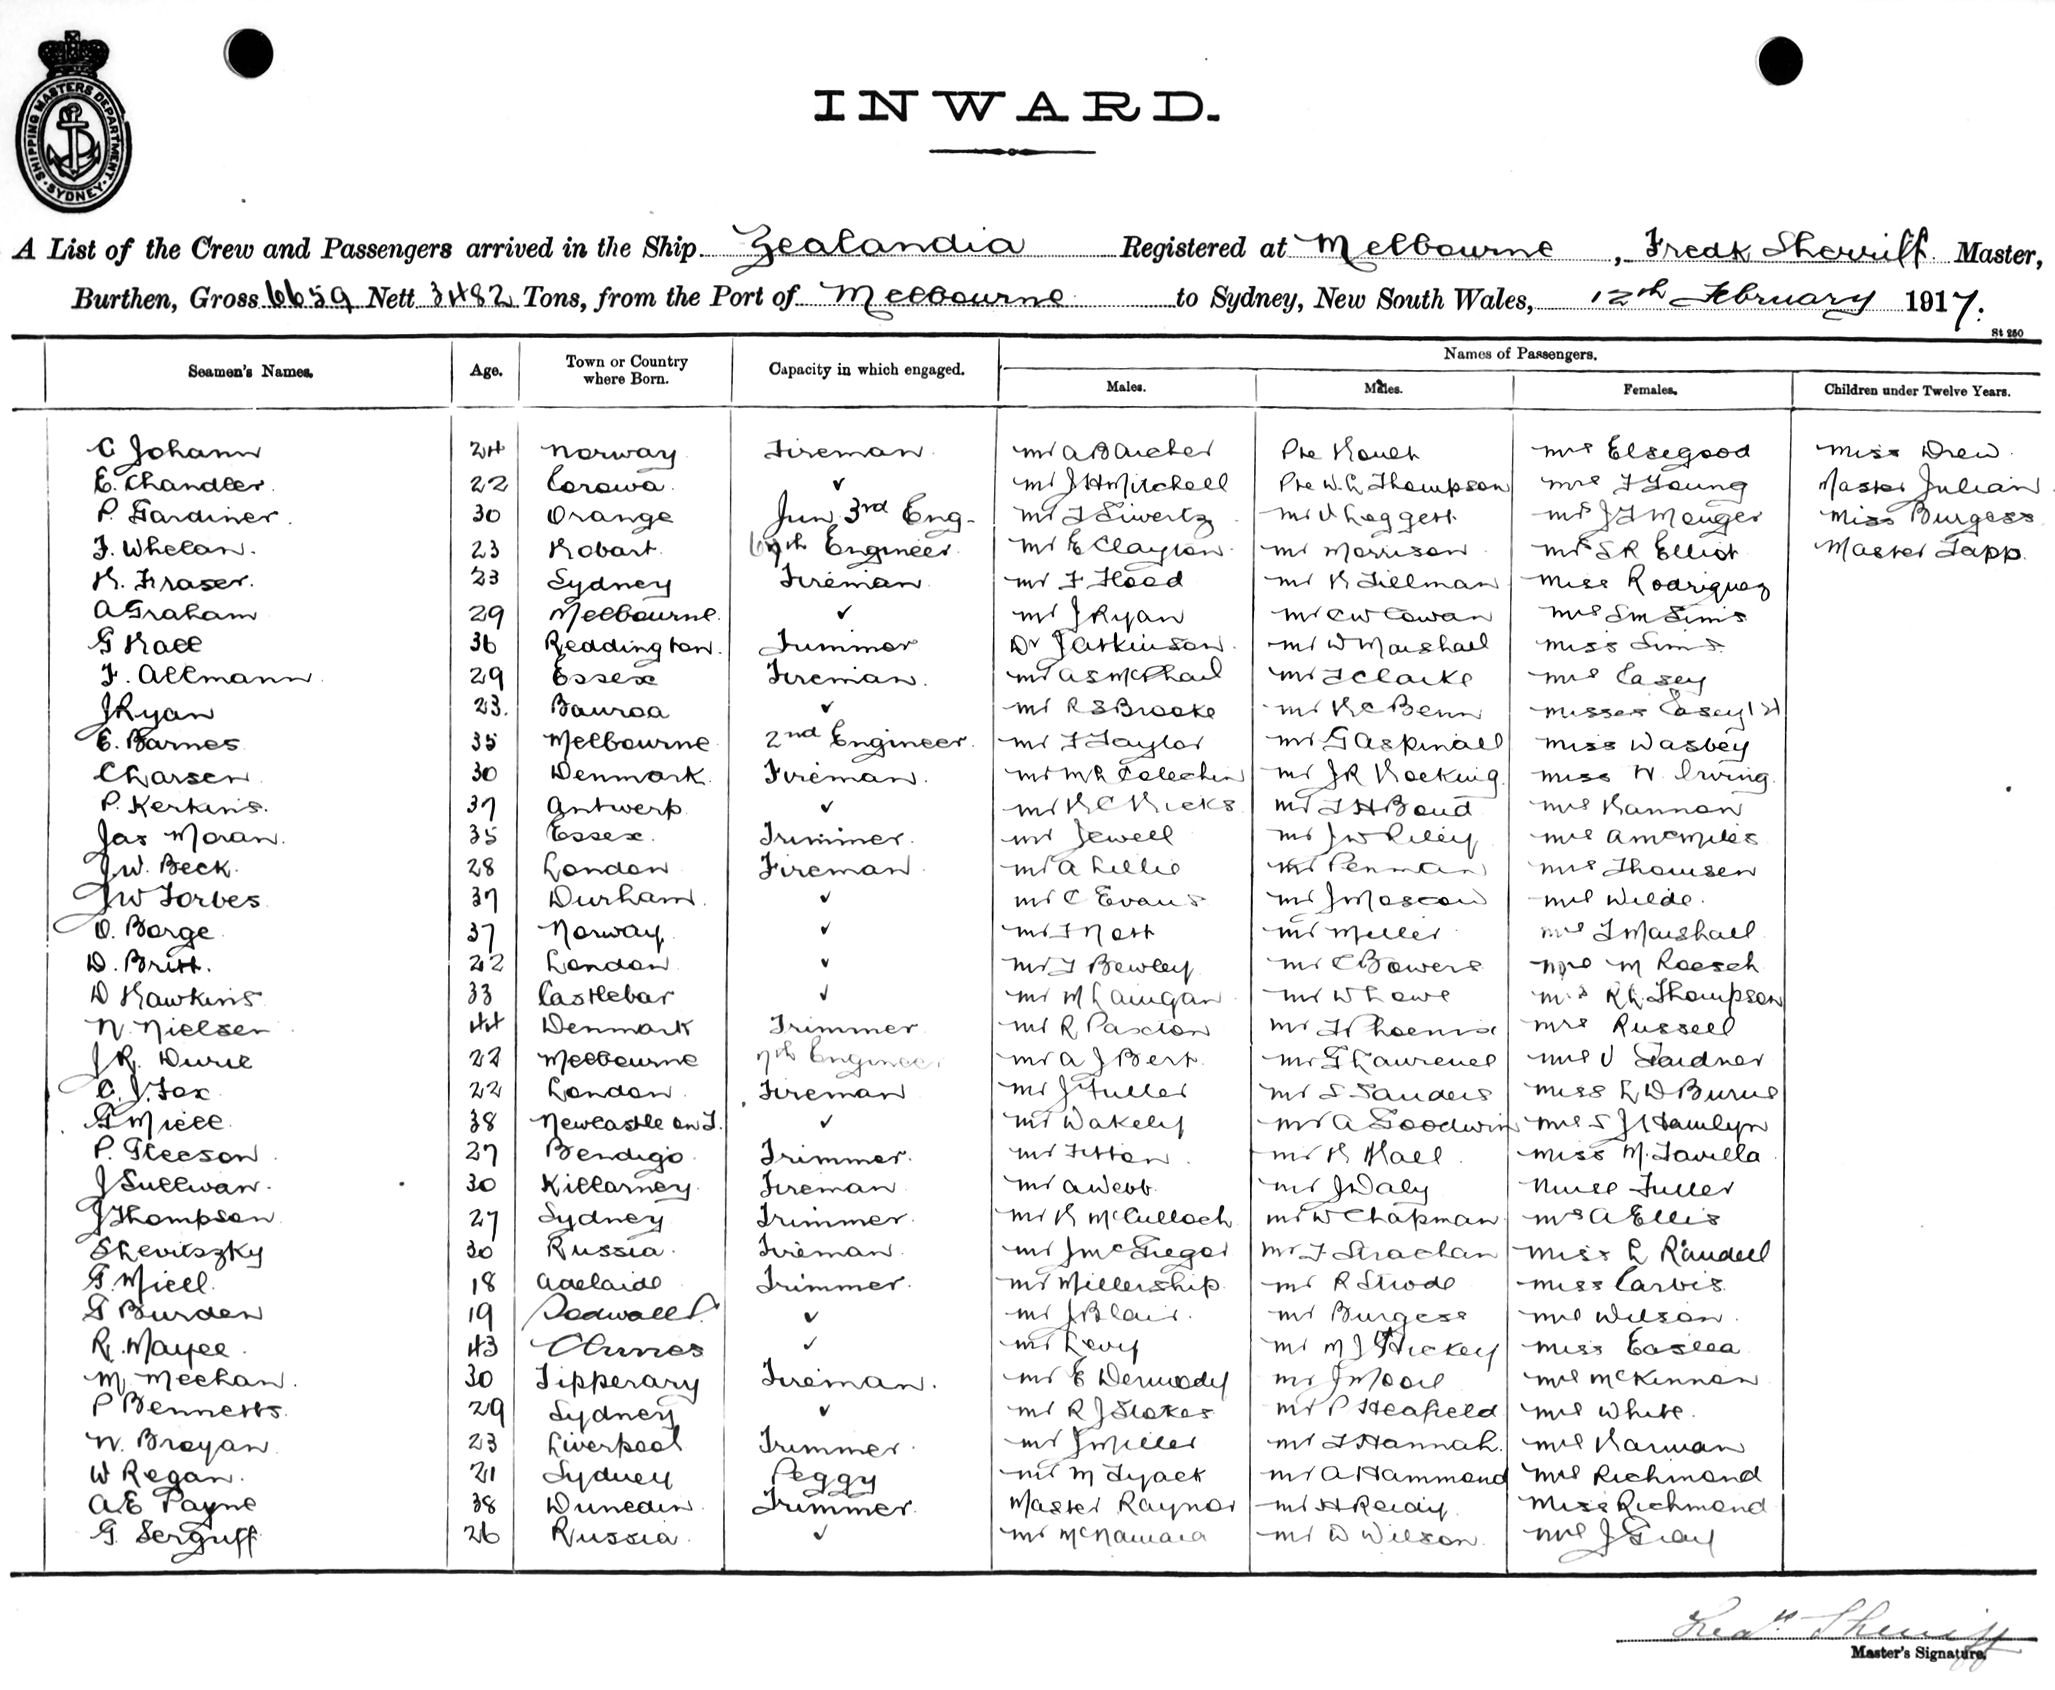 SHIPPING MASTERS DEPARTMENT. SYDNEY.
INWARD.
A List of the Crew and Passengers arrived in the Ship Zealandia Registered at Melbourne, Fredk Sherriff Master,
Burthen, Gross 6659 Nett 3482 Tons, from the Port of Melbourne to Sydney, New South Wales, 12th February 1917.
St 250
Seamen's Names. Age. Town or Country where Born. Capacity in which engaged. Names of Passengers.
Males. Males. Females. Children under Twelve Years.
C Johann 24 Norway Fireman Mr A B Archer Pte Mrs Elsegood Miss Drew
E. Chandler 22 Corowa ✓ Mr J H Mitchell Pte W. L Thompson Mrs F Young Master Julian
P. Gardiner 30 Orange Jun 3rd Eng. Mr F Siwertz Mr V Leggett Mrs J F Menger Miss Burgess
F. Whelan 23 Hobart Engineer Mr E Clayton Mr Morrison Mrs S R Elliot Master Tapp
H. Fraser 23 Sydney Fireman Mr F Flood Mr H Tillman Miss Rodriguez
A Graham 29 Melbourne ✓ Mr J Ryan Mr C W Cowan Mrs S M Sims
G Hall 36 Reddington Trimmer Dr J Atkinson Mr W Marshall Miss Sims
F. Allmann 29 Essex Fireman Mr A S McPhail Mr F Clarke Mrs Casey
J Ryan 23 ✓ Mr R S Brooke Mr H C Benn Misses Casey (2)
E. Barnes 35 Melbourne 2nd Engineer Mr F Taylor Mr G Aspinall Miss Wasbey
C Larsen 30 Denmark Fireman Mr M R Mr J R Hocking Miss N. Irving
P. Kerkins 37 Antwerp ✓ Mr H C Hicks Mr F H Bond Mrs Hannon
Jas Moran 35 Essex Trimmer Mr Jewell Mr J W Riley Mrs A McMiles
J W. Beck 28 London Fireman Mr A Lillie Mr Penman Mrs Thomsen
J W Forbes 37 Durham ✓ Mr C Evans Mr J Moscow Mrs Wilde
O. Borge 37 Norway ✓ Mr F Nott Mr Miller Mrs F Marshall
D. Britt 22 London ✓ Mr F Bewley Mr C Bowers Mrs M Roesch
D Hawkins 33 Castlebar ✓ Mr M Lanigan Mr W Lowe Mrs R L Thompson
N. Nielsen 44 Denmark Trimmer Mr R Paxton Mr F Phoenix Mrs Russell
J R. Durie 22 Melbourne 7th Engineer Mr A J Bert Mr G Laurence Mrs V Gardner
C. J. Fox 22 London Fireman Mr J Fuller Mr S Sanders Miss L D Burns
G Miell 38 Newcastle on T. ✓ Mr Wakely Mr A Goodwin Mrs S J Hamlyn
P. Gleeson 27 Bendigo Trimmer Mr Fitton Mr H Hall Miss M. Favilla
J Sullivan 30 Killarney Fireman Mr A Webb Mr J Daly Nurse Fuller
J Thompson 27 Sydney Trimmer Mr H McCulloch Mr W Chapman Mrs A Ellis
S Levitszky 30 Russia Fireman Mr J McGregor Mr F Strachan Miss L Randell
G. Miell 18 Adelaide Trimmer Mr Millership Mr R Strode Miss Carvis
G Burden 19 ✓ Mr J Blair Mr Burgess Mrs Wilson
R. Mayee 43 Clunes ✓ Mr Levy Mr M J Hickey Miss Easlea
M Meehan 30 Tipperary Fireman Mr E Dermody Mr J Moore Mrs McKinnon
P Bennetts 29 Sydney ✓ Mr R J Stokes Mr P Heafield Mrs White
N. Broyan 23 Liverpool Trimmer Mr J Miller Mr F Hannah Mrs Harman
W Regan 21 Sydney Peggy Mr M Tyack Mr A Hammond Mrs Richmond
A E Payne 38 Dunedin Trimmer Master Raynor Mr H Reidy Miss Richmond
G. Serguff 26 Russia ✓ Mr McNamara Mr D Wilson Mrs J Gray
Fredk Sherriff
Master's Signature.